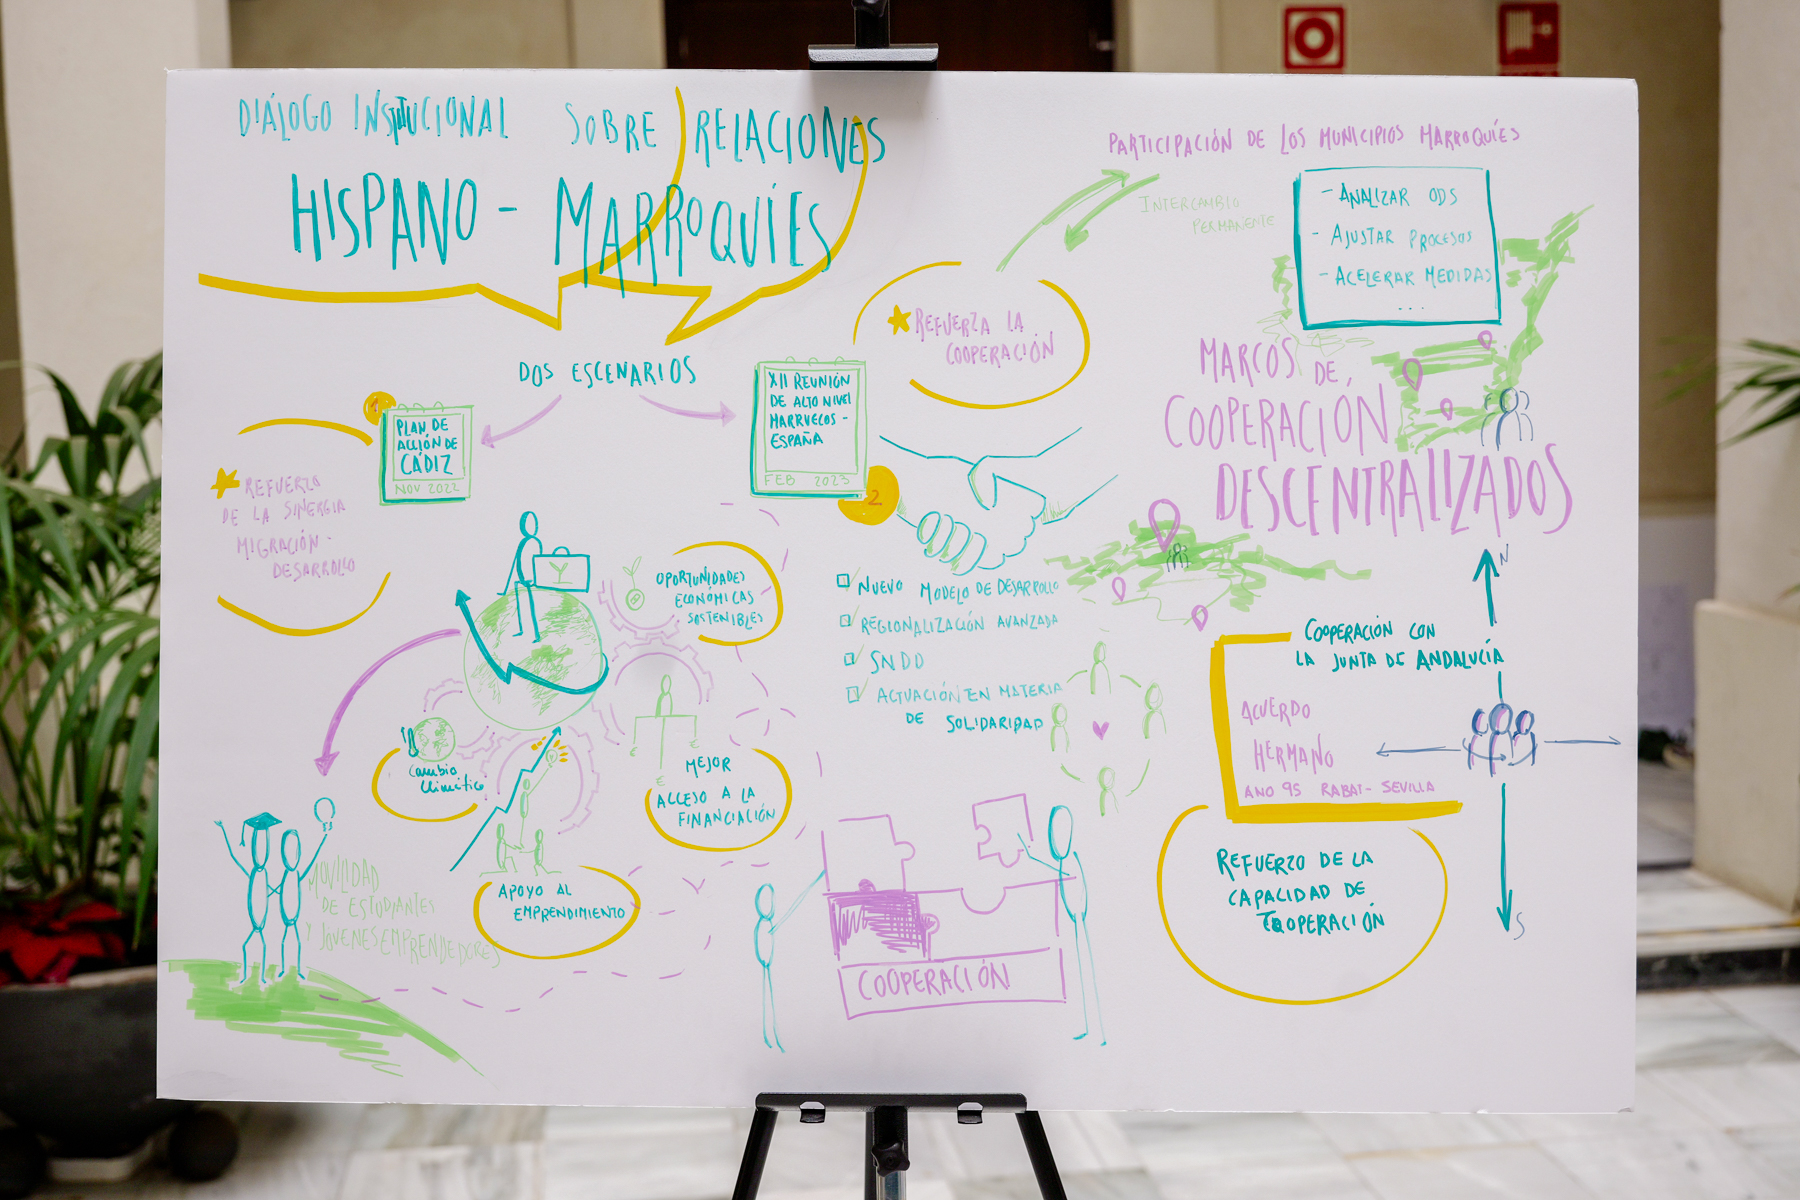 DIÁLOGO INSTITUCIONAL SOBRE RELACIONES
HISPANO - MARROQUÍES
DOS ESCENARIOS
1
PLAN DE
ACCIÓN DE
CÁDIZ
NOV 2022
REFUERZO
DE LA SINERGIA
MIGRACIÓN -
DESARROLLO
XII REUNIÓN
DE ALTO NIVEL
MARRUECOS -
ESPAÑA
FEB 2023
2
REFUERZA LA
COOPERACIÓN
INTERCAMBIO
PERMANENTE
PARTICIPACIÓN DE LOS MUNICIPIOS MARROQUÍES
- ANALIZAR ODS
- AJUSTAR PROCESOS
- ACELERAR MEDIDAS
...
MARCOS DE
COOPERACIÓN
DESCENTRALIZADOS
OPORTUNIDADES
ECONÓMICAS
SOSTENIBLES
MEJOR
ACCESO A LA
FINANCIACIÓN
Cambio
Climático
APOYO AL
EMPRENDIMIENTO
MOVILIDAD
DE ESTUDIANTES
Y JÓVENES EMPRENDEDORES
NUEVO MODELO DE DESARROLLO
REGIONALIZACIÓN AVANZADA
SNDD
ACTUACIÓN EN MATERIA
DE SOLIDARIDAD
COOPERACIÓN
N
COOPERACIÓN CON
LA JUNTA DE ANDALUCÍA
ACUERDO
HERMANO
ANO 95 RABAT - SEVILLA
S
REFUERZO DE LA
CAPACIDAD DE
COOPERACIÓN